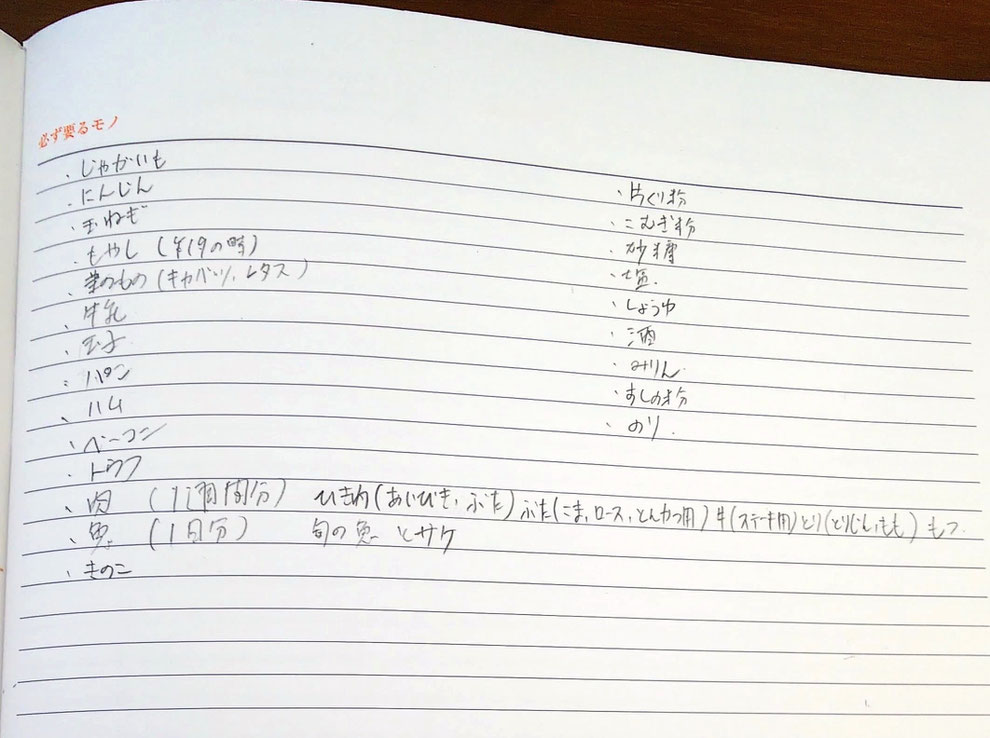 必ず要るモノ
・じゃがいも
・にんじん
・玉ねぎ
・もやし (¥19の時)
・葉のもの (キャベツ、レタス)
・牛乳
・玉子
・パン
・ハム
・ベーコン
・トウフ
・肉 (1週間分) ひき肉(あいびき、ぶた) ぶた(こま、ロース、とんかつ用) 牛(ステーキ用) とり(とりむね、もも) もつ
・魚 (1日分) 旬の魚 とサケ
・きのこ
・片くり粉
・こむぎ粉
・砂糖
・塩
・しょうゆ
・酒
・みりん
・すしの粉
・のり